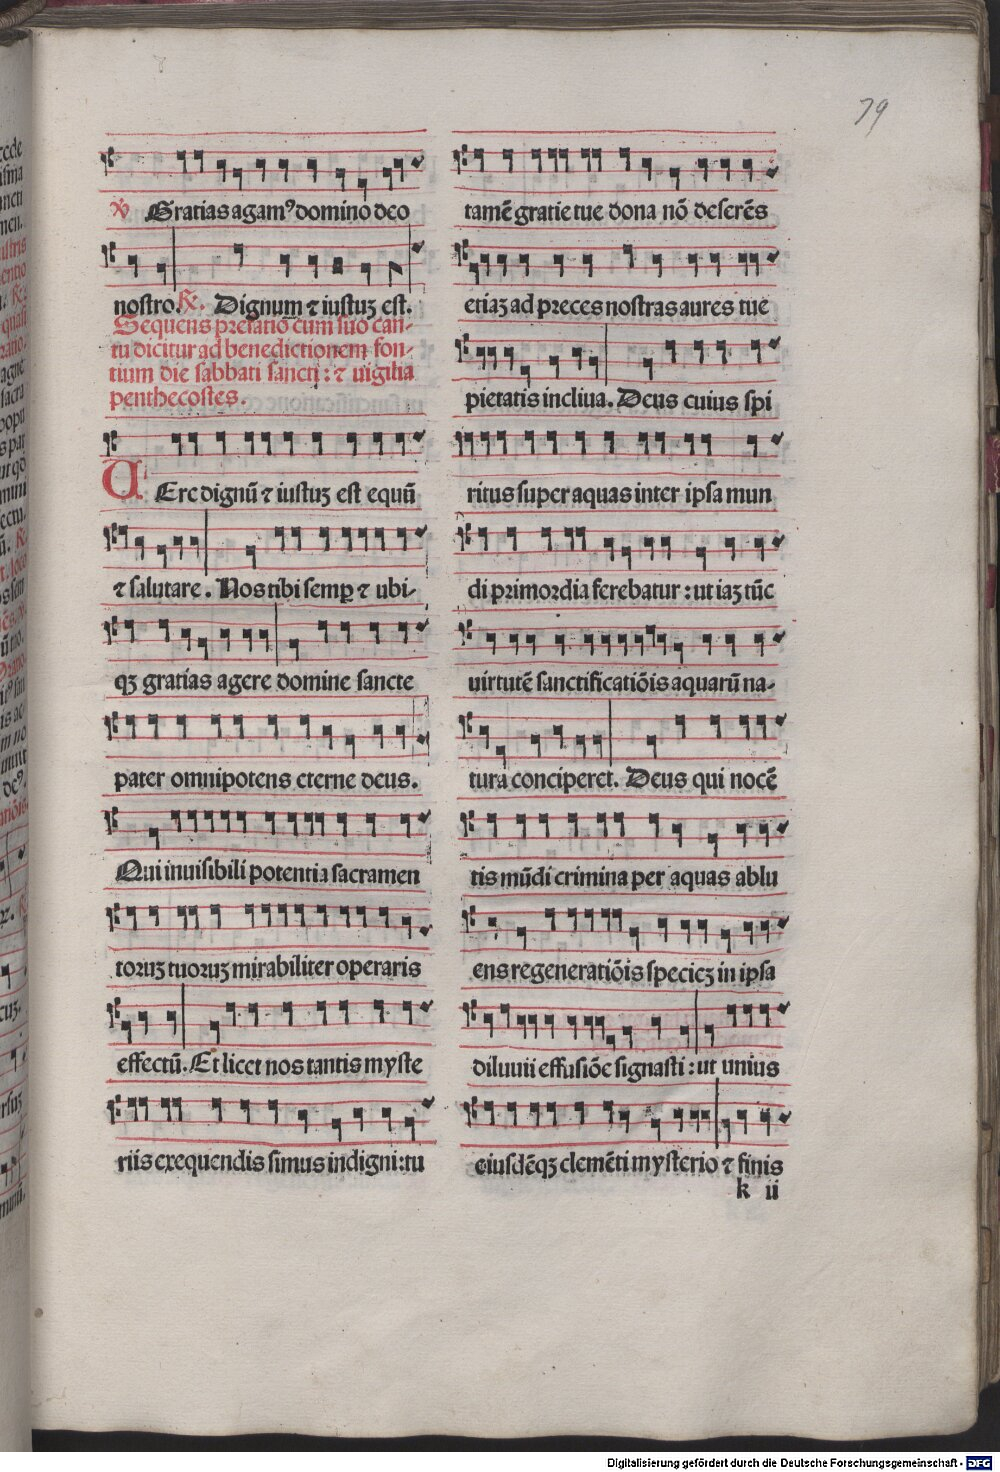 79
℣ Gratias agamꝰ domino deo
nostro. ℟. Dignum ⁊ iustuꝫ est.
Sequens prefatio cum suo can-
tu dicitur ad benedictionem fon-
tium die sabbati sancti: ⁊ uigilia
penthecostes.
UEre dignū ⁊ iustuꝫ est equū
⁊ salutare. Nos tibi semꝑ ⁊ ubi-
qꝫ gratias agere domine sancte
pater omnipotens eterne deus.
Qui inuisibili potentia sacramen
toruꝫ tuoruꝫ mirabiliter operaris
effectū. Et licet nos tantis myste
riis exequendis simus indigni: tu
tamē gratie tue dona nō deserēs
etiaꝫ ad preces nostras aures tue
pietatis inclina. Deus cuius spi
ritus super aquas inter ipsa mun
di primordia ferebatur: ut iaꝫ tūc
uirtutē sanctificatiōis aquarū na-
tura conciperet. Deus qui nocē
tis mūdi crimina per aquas ablu
ens regeneratiōis specieꝫ in ipsa
diluuii effusiōe signasti: ut unius
eiusdēqꝫ elemēti mysterio ⁊ finis
k ii
Digitalisierung gefördert durch die Deutsche Forschungsgemeinschaft - DFG